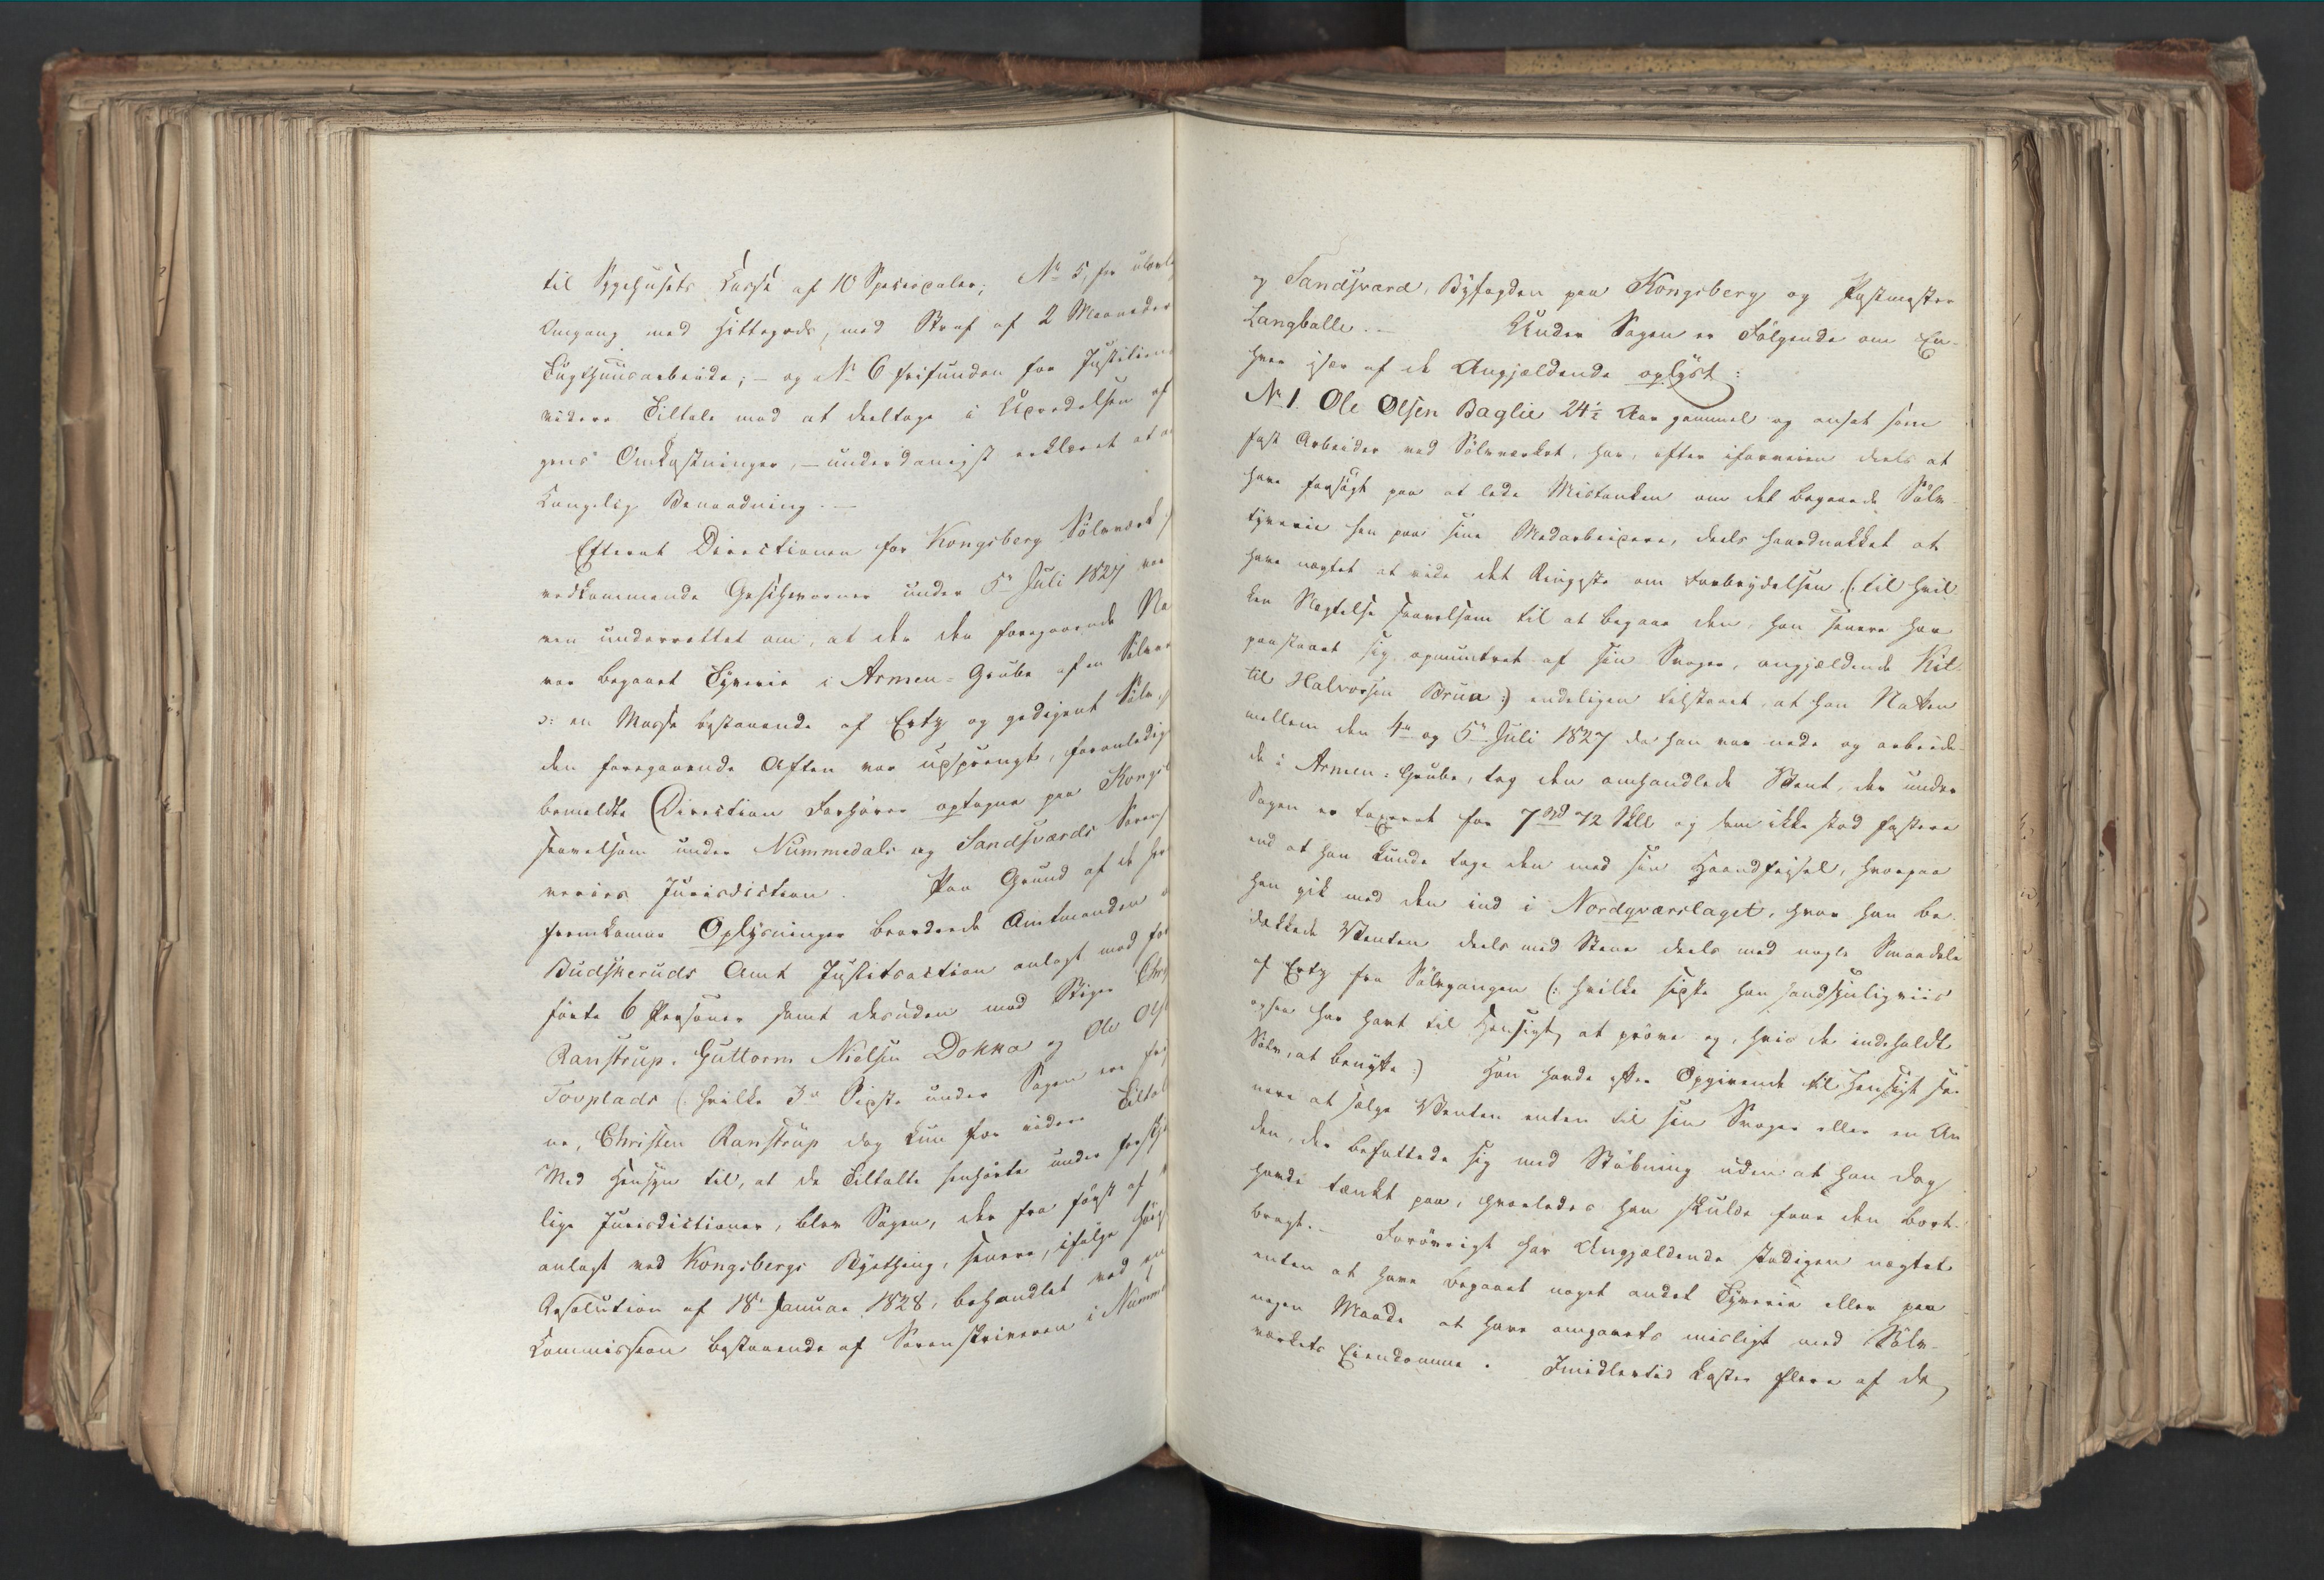 til Sygehusets Kasse af 10 Speciedaler; No 5, for ulovlig
Omgang med Hittegods, med Straf af 2 Maaneders
Tugthuusarbeide; – og No 6 frifunden for Justitiens
videre Tiltale mod at deeltage i Udredelsen af
gens Omkostninger, – underdanigst erklæret at
Kongelig Benaadning. –
Efterat Directionen for Kongsberg Sölvværk
vedkommende Geschworner under 5te Juli 1827 var
ven underrettet om, at der den foregaaende Na
var begaaet Tyverie i Armen-Grube af en
ɔ: en Masse bestaaende af Ertz og gedigent Sölv,
den foregaaende Aften var udsprengt, foranledig
bemeldte Direction Forhörer optagne paa Kongsb
saavelsom under Nummedals og Sandsværds Soren
veries Jurisdiction. Paa Grund af de her
fremkomne Oplysninger beordrede Amtmanden
Budskeruds Amt Justitsaction anlagt mod
förte 6 Personer samt desuden mod Stiger Chr
Ranstrup, Guttorm Nielsen Dokka og Ole Ols
Tovplads (: hvilke 3de Sidste under Sagen ere fri
ne, Christen Ranstrup dog kun for videre Tiltal
Med Hensyn til, at de Tiltalte henhörte under forskjel
lige Jurisdictioner, blev Sagen, der fra först af
anlagt ved Kongsbergs Bything, senere, ifölge höie
Resolution af 18de Januar 1828, behandlet ved en
Commission bestaaende af Sorenskriveren i Numme
og Sandsværd, Byfogden paa Kongsberg og Postmester
Langballe. – Under Sagen er Fölgende om En-
hver især af de Angjældende oplyst:
No 1. Ole Olsen Baglie 24½ Aar gammel og ansat som
fast Arbeider ved Sölvværket, har, efter iforveien deels at
have forsögt paa at lede Mistanken om det begaaede Sölv-
tyverie hen paa sine Medarbeidere, deels haardnakket at
have nægtet at vide det Ringeste om Forbrydelsen (: til hvil-
ken Nægtelse saavelsom til at begaae den, han senere har
paastaaet sig opmuntret af sin Svoger, angjældende Kit-
til Halvorsen Brua :) endeligen tilstaaet, at han Natten
mellem den 4de og 5te Juli 1827 da han var nede og arbeide-
de i Armen-Grube, tog den omhandlede Stent, der under
Sagen er taxeret for 7 Spd 72 Skll og som ikke stod fastere
end at han kunde tage den med sin Haandfeisel, hvorpaa
han gik med den ind i Nordqværslaget, hvor han be-
dækkede Stenten deels med Stene deels med nogle Smaadele
af Ertz fra Sölvgangen (: hvilke sidste han sandsynligviis
ogsaa har havt til Hensigt, at pröve og, hvis de indeholdt
Sölv, at benytte :) Han havde efter Opgivende til Hensigt se-
nere at sælge Stenten enten til sin Svoger eller en An-
den, der befattede sig med Stöbning uden at han dog
havde tænkt paa, hvorledes han skulde faae den bort-
bragt. – Forövrigt har Angjældende stadigen nægtet
enten at have begaaet noget andet Tyverie eller paa
nogen Maade at have omgaaets misligt med Sölv-
værkets Eiendomme. Imidlertid kaster flere af de